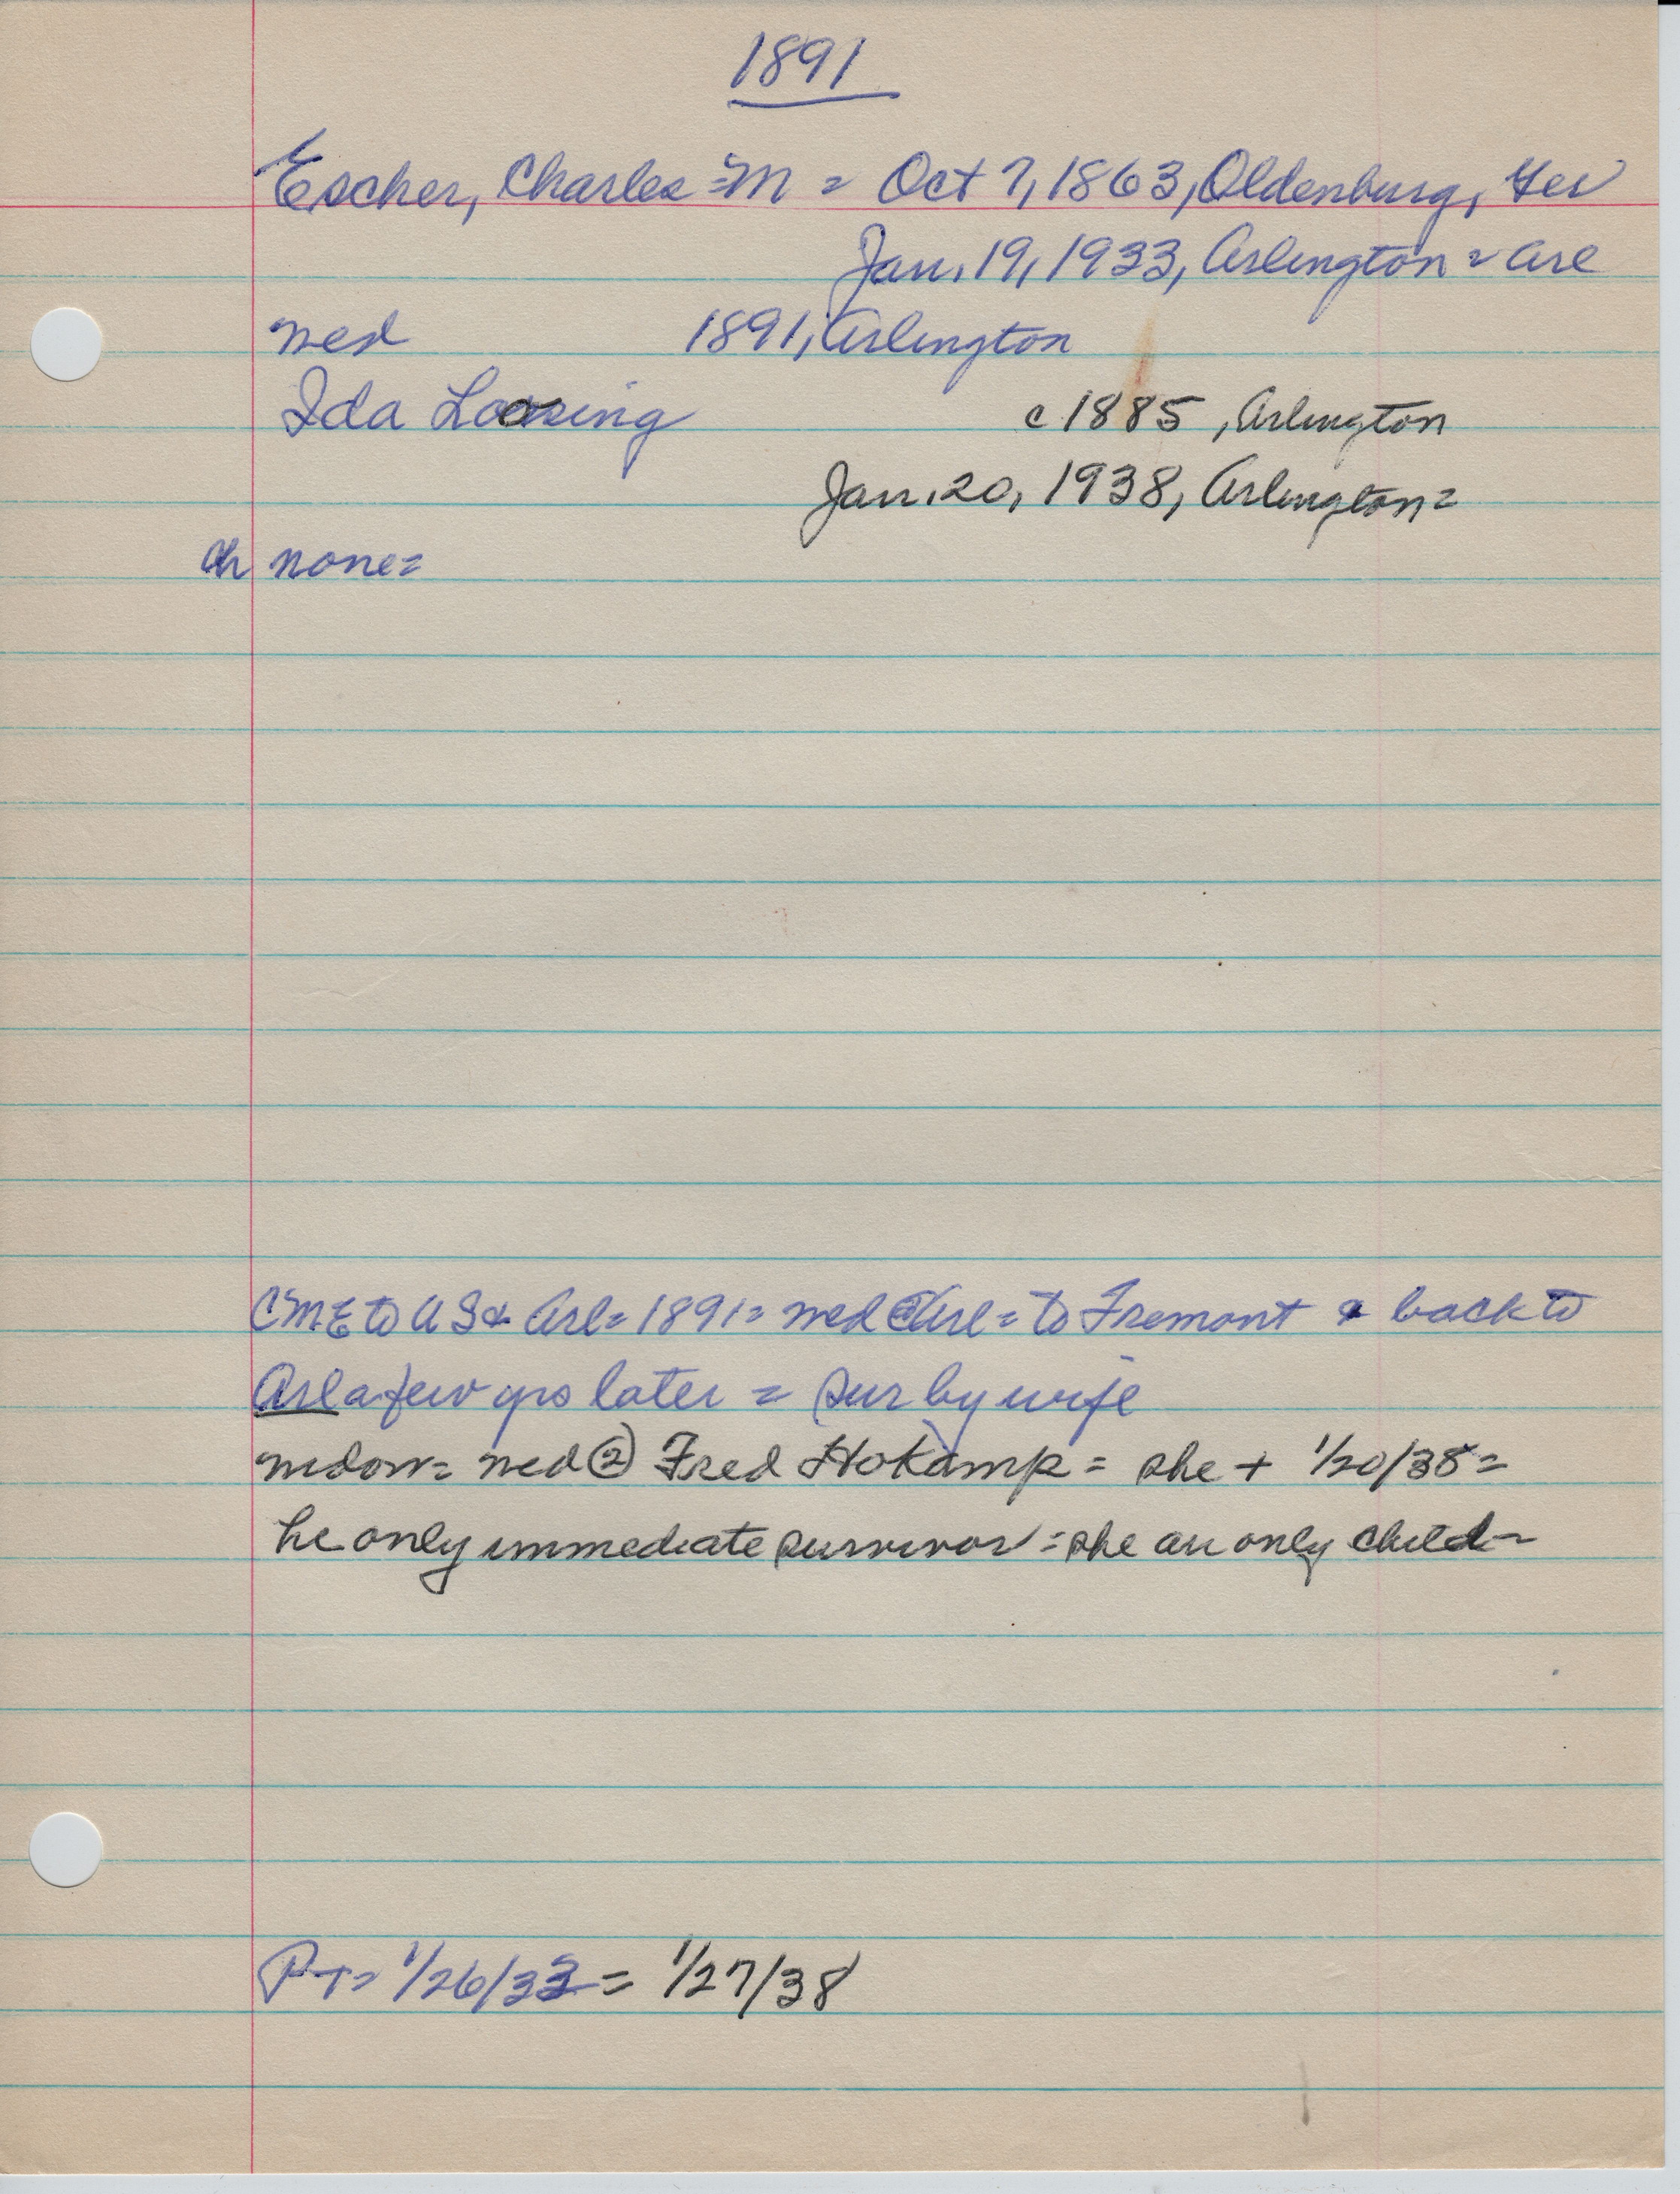 1891
Escher, Charles = M = Oct 7, 1863, Oldenburg, Ger
Jan. 19, 1933, Arlington = Arl
med 1891, Arlington
Ida Loosing c 1885, Arlington
Jan. 20, 1938, Arlington =
ch none =
CME to US & Arl = 1891 = med @ Arl = to Fremont & back to
Arl a few yrs later = sur by wife
med @ 2 Fred Hokamp = she + 1/20/38 =
he only immediate survivor = she an only child =
PT = 1/26/33 = 1/27/38